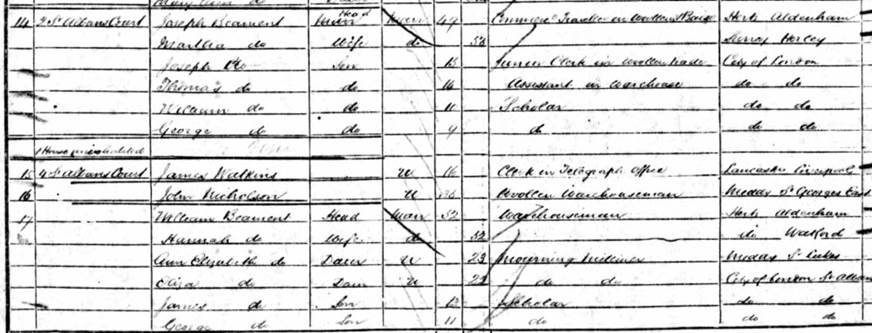 14 2 St Albans Court Joseph Beament Head Mar 49 Commerc Traveller in Woollen & Baize Herts Aldenham
Martha do Wife do 50 Surrey Horley
Joseph do Son 18 Junior Clerk in Woollen trade City of London
Thomas do do 14 Assistant in Warehouse do do
William do do 11 Scholar do do
George do do 9 do do do
1 House uninhabited
15 4 St Albans Court James Watkins U 16 Clerk in Telegraph Office Lancaster Liverpool
16 John Nicholson U Woollen Warehouseman Middx St Georges East
17 William Beament Head Mar 52 Warehouseman Herts Aldenham
Hannah do Wife do 52 do Watford
Ann Elizabeth do Daur U 23 Mourning Milliner Middx St Lukes
Eliza do Daur U 21 do do City of London St Albans
James do Son 13 Scholar do do
George do Son 11 do do do